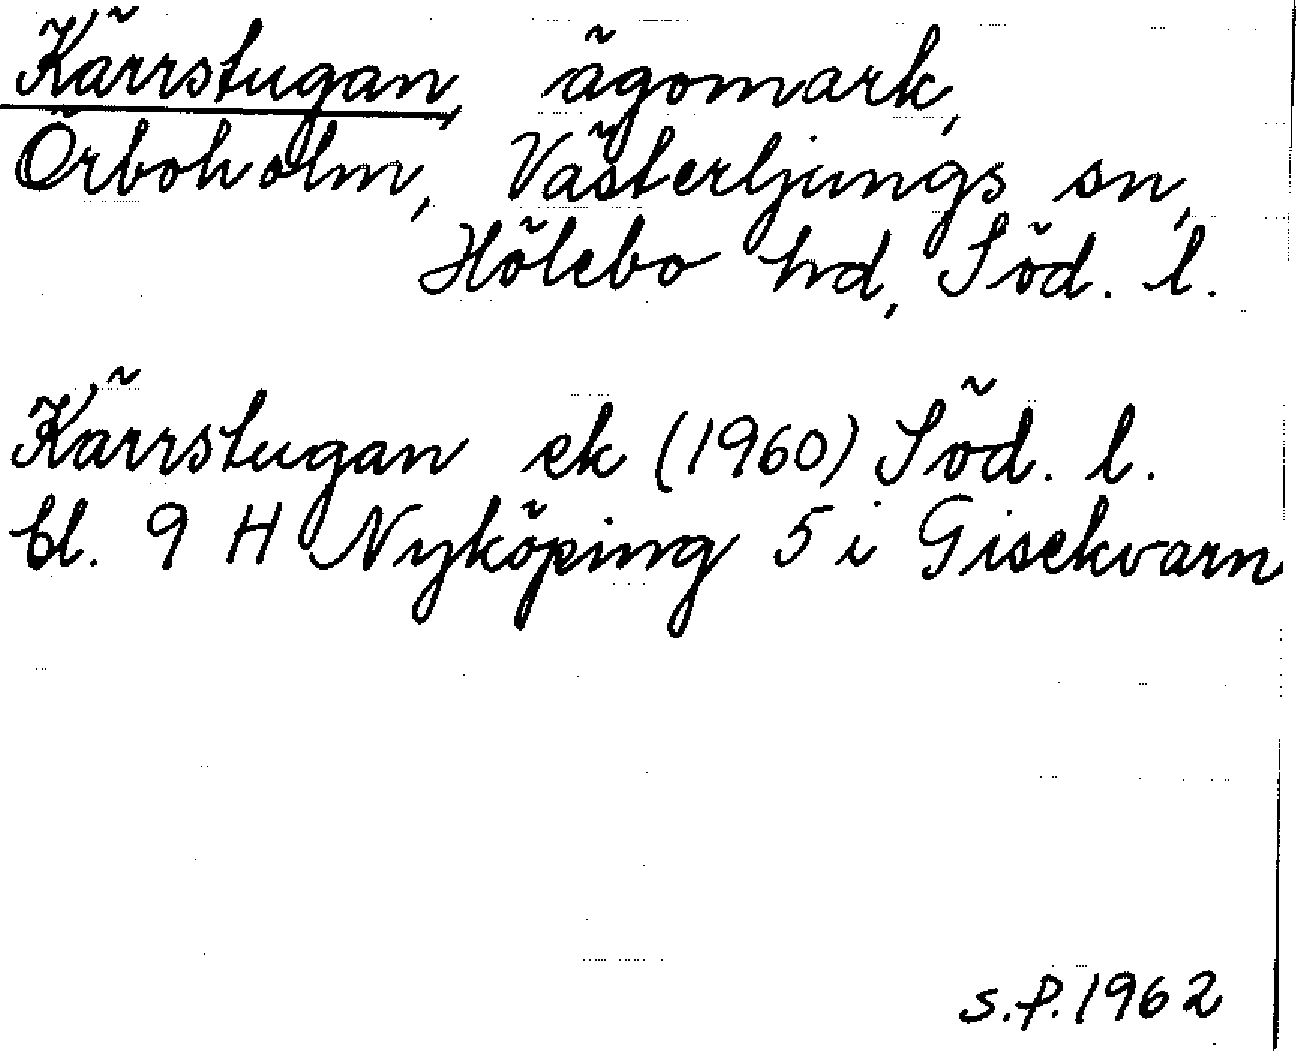 Kärrstugan, ägomark,
Örboholm, Västerljungs sn,
Hölebo hd, Söd. l.
Kärrstugan ek (1960) Söd. l.
bl. 9 H Nyköping 5 i Gisekvarn
s.p. 1962